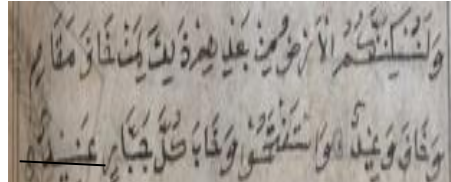 وَلَنُسْكِنَنَّكُمُ الْأَرْضَ مِنْ بَعْدِهِمْ ذَٰلِكَ لِمَنْ خَافَ مَقَامِي
وَخَافَ وَعِيدِ وَاسْتَفْتَحُوا وَخَابَ كُلُّ جَبَّارٍ عَنِيدٍ